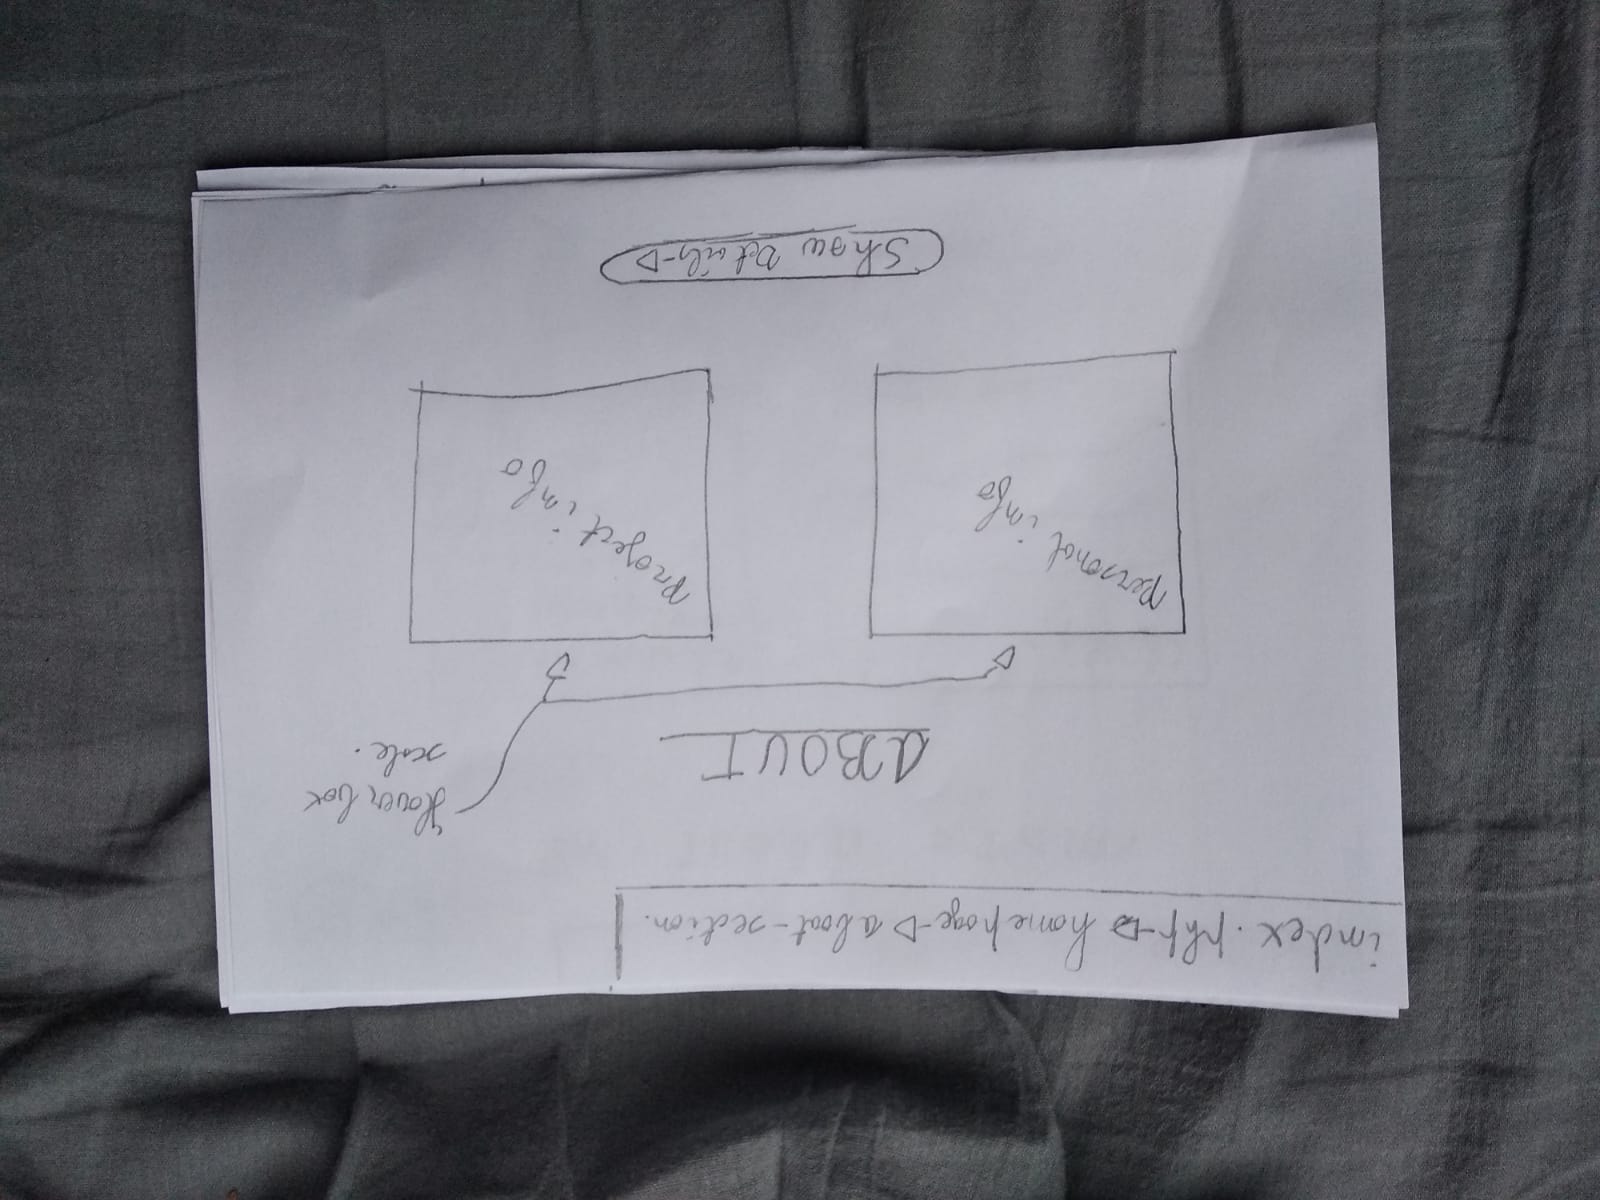 index.php → homepage → about-section.
Hover box
scale.
ABOUT
Personal info
Project info
Show Details →